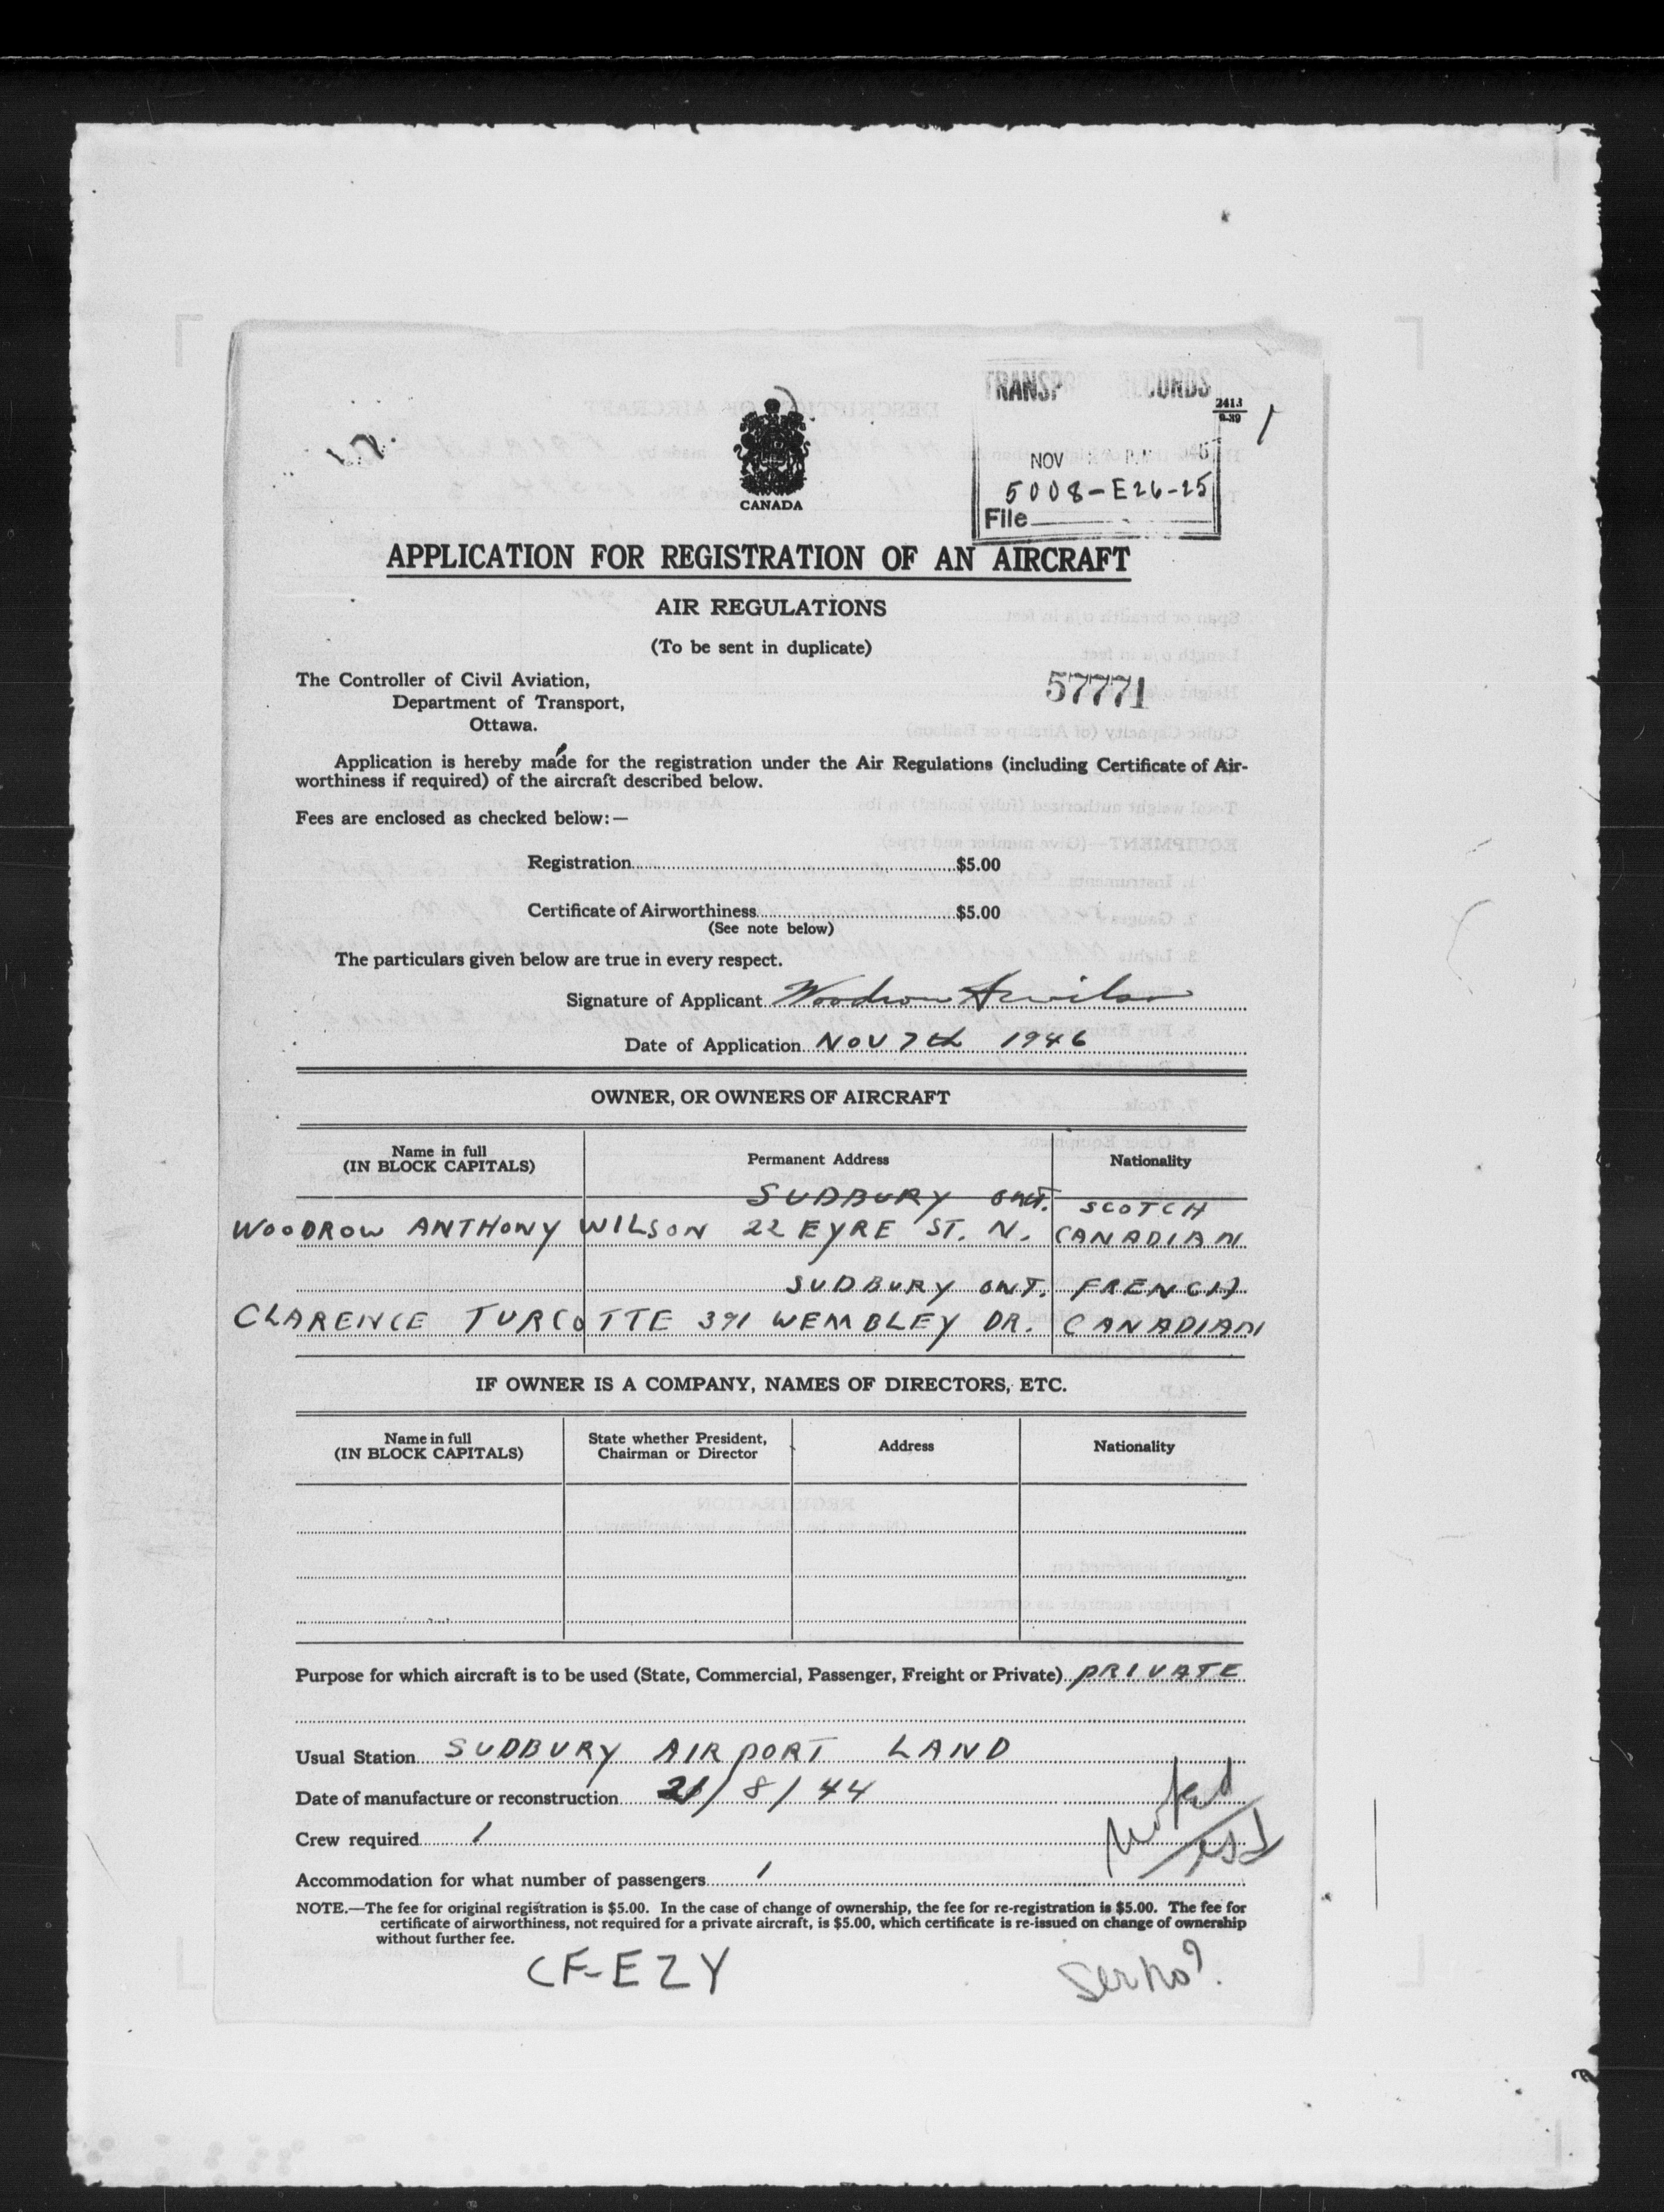 TRANSP RECORDS
2413
9-39
12.
NOV P.M.
5008-E26-25
File
CANADA
APPLICATION FOR REGISTRATION OF AN AIRCRAFT
AIR REGULATIONS
(To be sent in duplicate)
The Controller of Civil Aviation,
Department of Transport,
Ottawa.
57771
Application is hereby made for the registration under the Air Regulations (including Certificate of Air-
worthiness if required) of the aircraft described below.
Fees are enclosed as checked below:—
Registration $5.00
Certificate of Airworthiness $5.00
(See note below)
The particulars given below are true in every respect.
Signature of Applicant Woodrow A Wilson
Date of Application NOV 7th 1946
OWNER, OR OWNERS OF AIRCRAFT
Name in full
(IN BLOCK CAPITALS) Permanent Address Nationality
SUDBURY ONT. SCOTCH
WOODROW ANTHONY WILSON 22 EYRE ST. N. CANADIAN
SUDBURY ONT. FRENCH
CLARENCE TURCOTTE 391 WEMBLEY DR. CANADIAN
IF OWNER IS A COMPANY, NAMES OF DIRECTORS, ETC.
Name in full
(IN BLOCK CAPITALS) State whether President,
Chairman or Director Address Nationality
Purpose for which aircraft is to be used (State, Commercial, Passenger, Freight or Private) PRIVATE
Usual Station SUDBURY AIRPORT LAND
Date of manufacture or reconstruction 21/8/44
Crew required 1
Accommodation for what number of passengers 1
NOTE.—The fee for original registration is $5.00. In the case of change of ownership, the fee for re-registration is $5.00. The fee for
certificate of airworthiness, not required for a private aircraft, is $5.00, which certificate is re-issued on change of ownership
without further fee.
CF-EZY
Ser No?